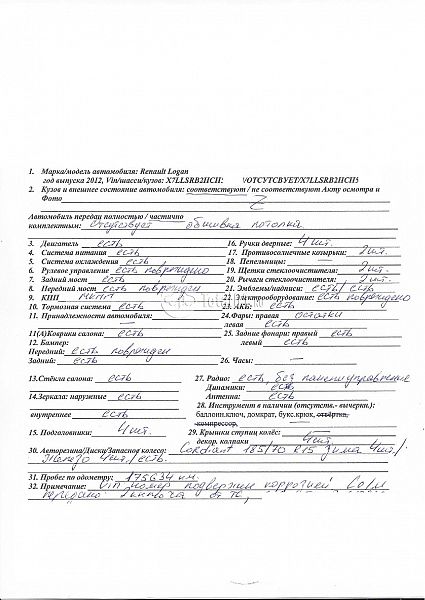 1. Марка/модель автомобиля: Renault Logan
год выпуска 2012, Vin/шасси/кузов: X7LLSRB2HCH /ОТСУТСТВУЕТ/X7LLSRB2HCH5
2. Кузов и внешнее состояние автомобиля: соответствуют / не соответствуют Акту осмотра и
Фото Z
Автомобиль передан полностью / частично
комплектным: Отсутствует обшивка потолка
3. Двигатель есть 16. Ручки дверные: 4 шт.
4. Система питания есть 17. Противосолнечные козырьки: 2 шт.
5. Система охлаждения есть 18. Пепельницы:
6. Рулевое управление есть повреждено 19. Щетки стеклоочистителя: 2 шт.
7. Задний мост есть 20. Рычаги стеклоочистителя: 2 шт.
8. Передний мост есть поврежден 21. Эмблемы/надписи: есть/есть
9. КПП МКПП 22. Электрооборудование: есть повреждено
10. Тормозная система есть 23. АКБ: есть
11. Принадлежности автомобиля: 24. Фары: правая остатки
левая есть
11(А)Коврики салона: есть 25. Задние фонари: правый есть
12. Бампер: левый есть
Передний: есть поврежден
Задний: есть 26. Часы:
13. Стёкла салона: есть 27. Радио: есть, без панели управления
Динамики: есть
14. Зеркала: наружные есть Антенна: есть
28. Инструмент в наличии (отсутств.- вычеркн.):
внутреннее есть баллонн.ключ, домкрат, букс.крюк, отвёртка,
компрессор,
15. Подголовники: 4 шт. 29. Крышки ступиц колёс:
декор. колпаки 4 шт.
30. Авторезина/Диски/Запасное колесо: Cordiant 185/70 R15 зима 4 шт/
Железо 4 шт./есть.
31. Пробег по одометру: 175634 км.
32. Примечание: Vin номер подвержен коррозией
передано